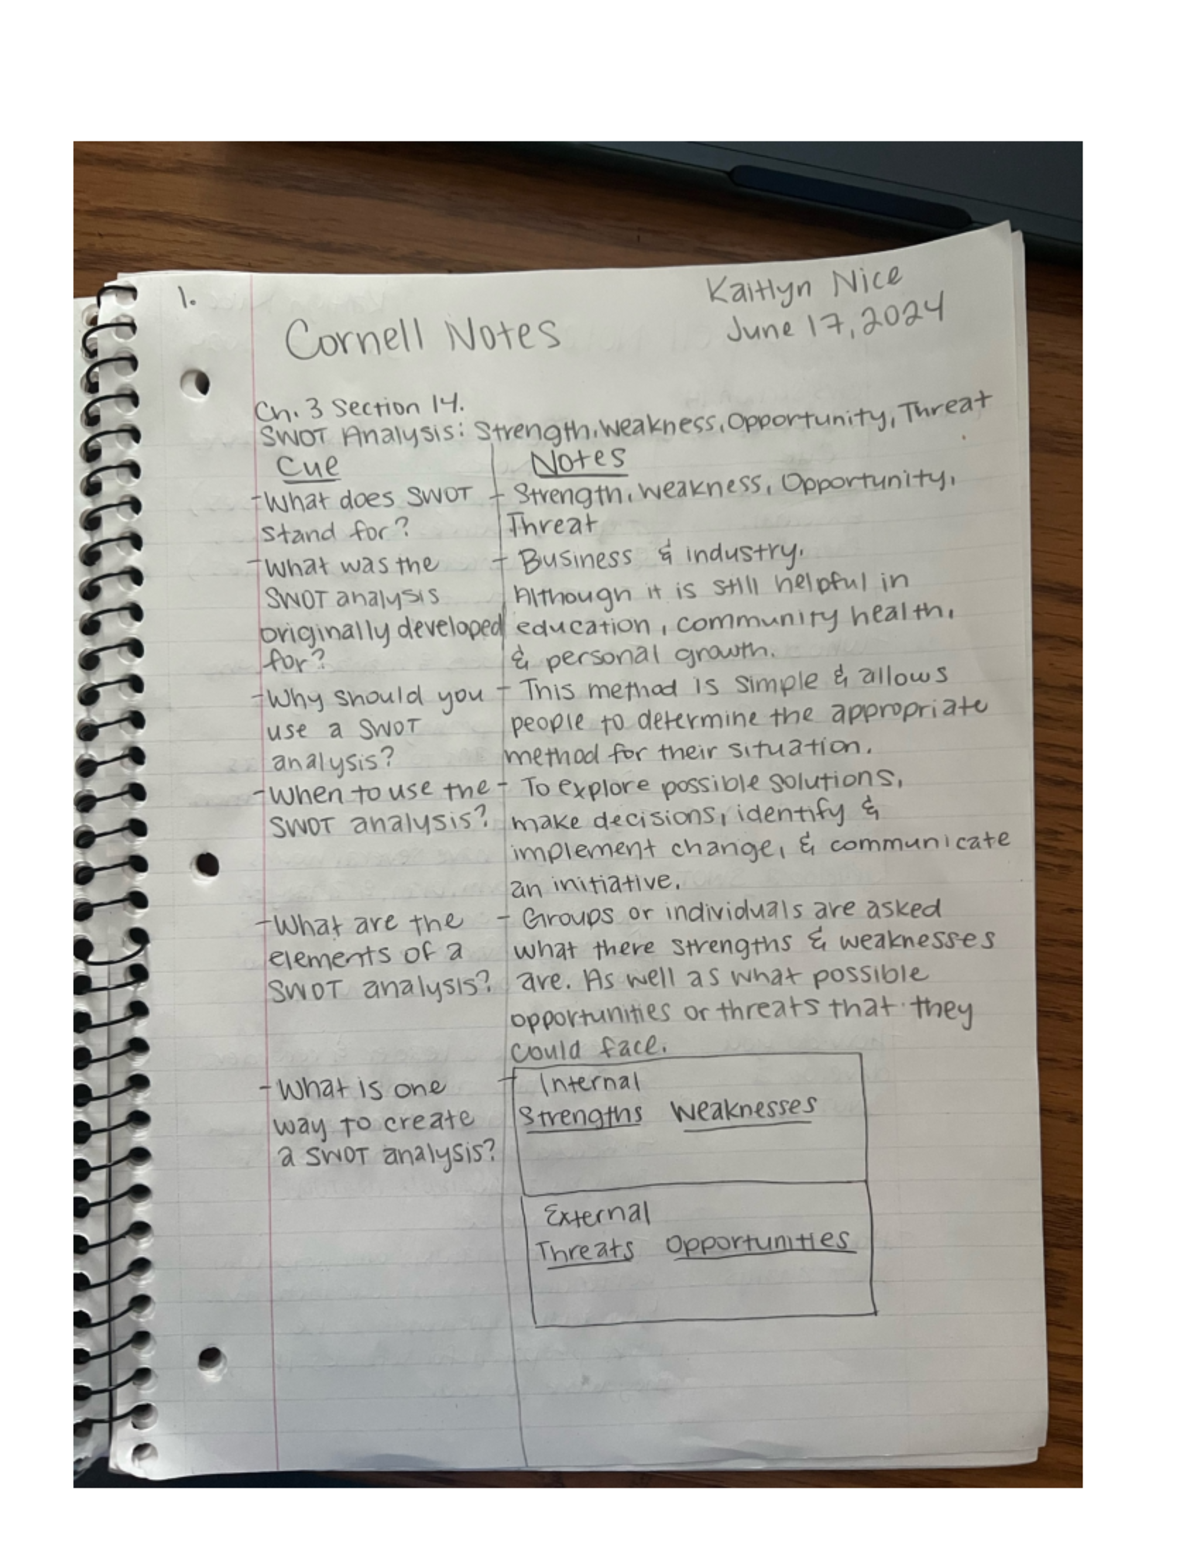 1.
Kaitlyn Nice
June 17, 2024
Cornell Notes
Ch. 3 Section 14.
SWOT Analysis: Strength, Weakness, Opportunity, Threat
Cue
Notes
- What does SWOT
stand for?
- Strength, Weakness, Opportunity,
Threat
- What was the
SWOT analysis
originally developed
for?
- Business & industry.
Although it is still helpful in
education, community health,
& personal growth.
- Why should you
use a SWOT
analysis?
- This method is simple & allows
people to determine the appropriate
method for their situation.
- When to use the
SWOT analysis?
- To explore possible solutions,
make decisions, identify &
implement change, & communicate
an initiative.
- What are the
elements of a
SWOT analysis?
- Groups or individuals are asked
what there strengths & weaknesses
are. As well as what possible
opportunities or threats that they
could face.
- What is one
way to create
a SWOT analysis?
- Internal
Strengths Weaknesses
External
Threats Opportunities